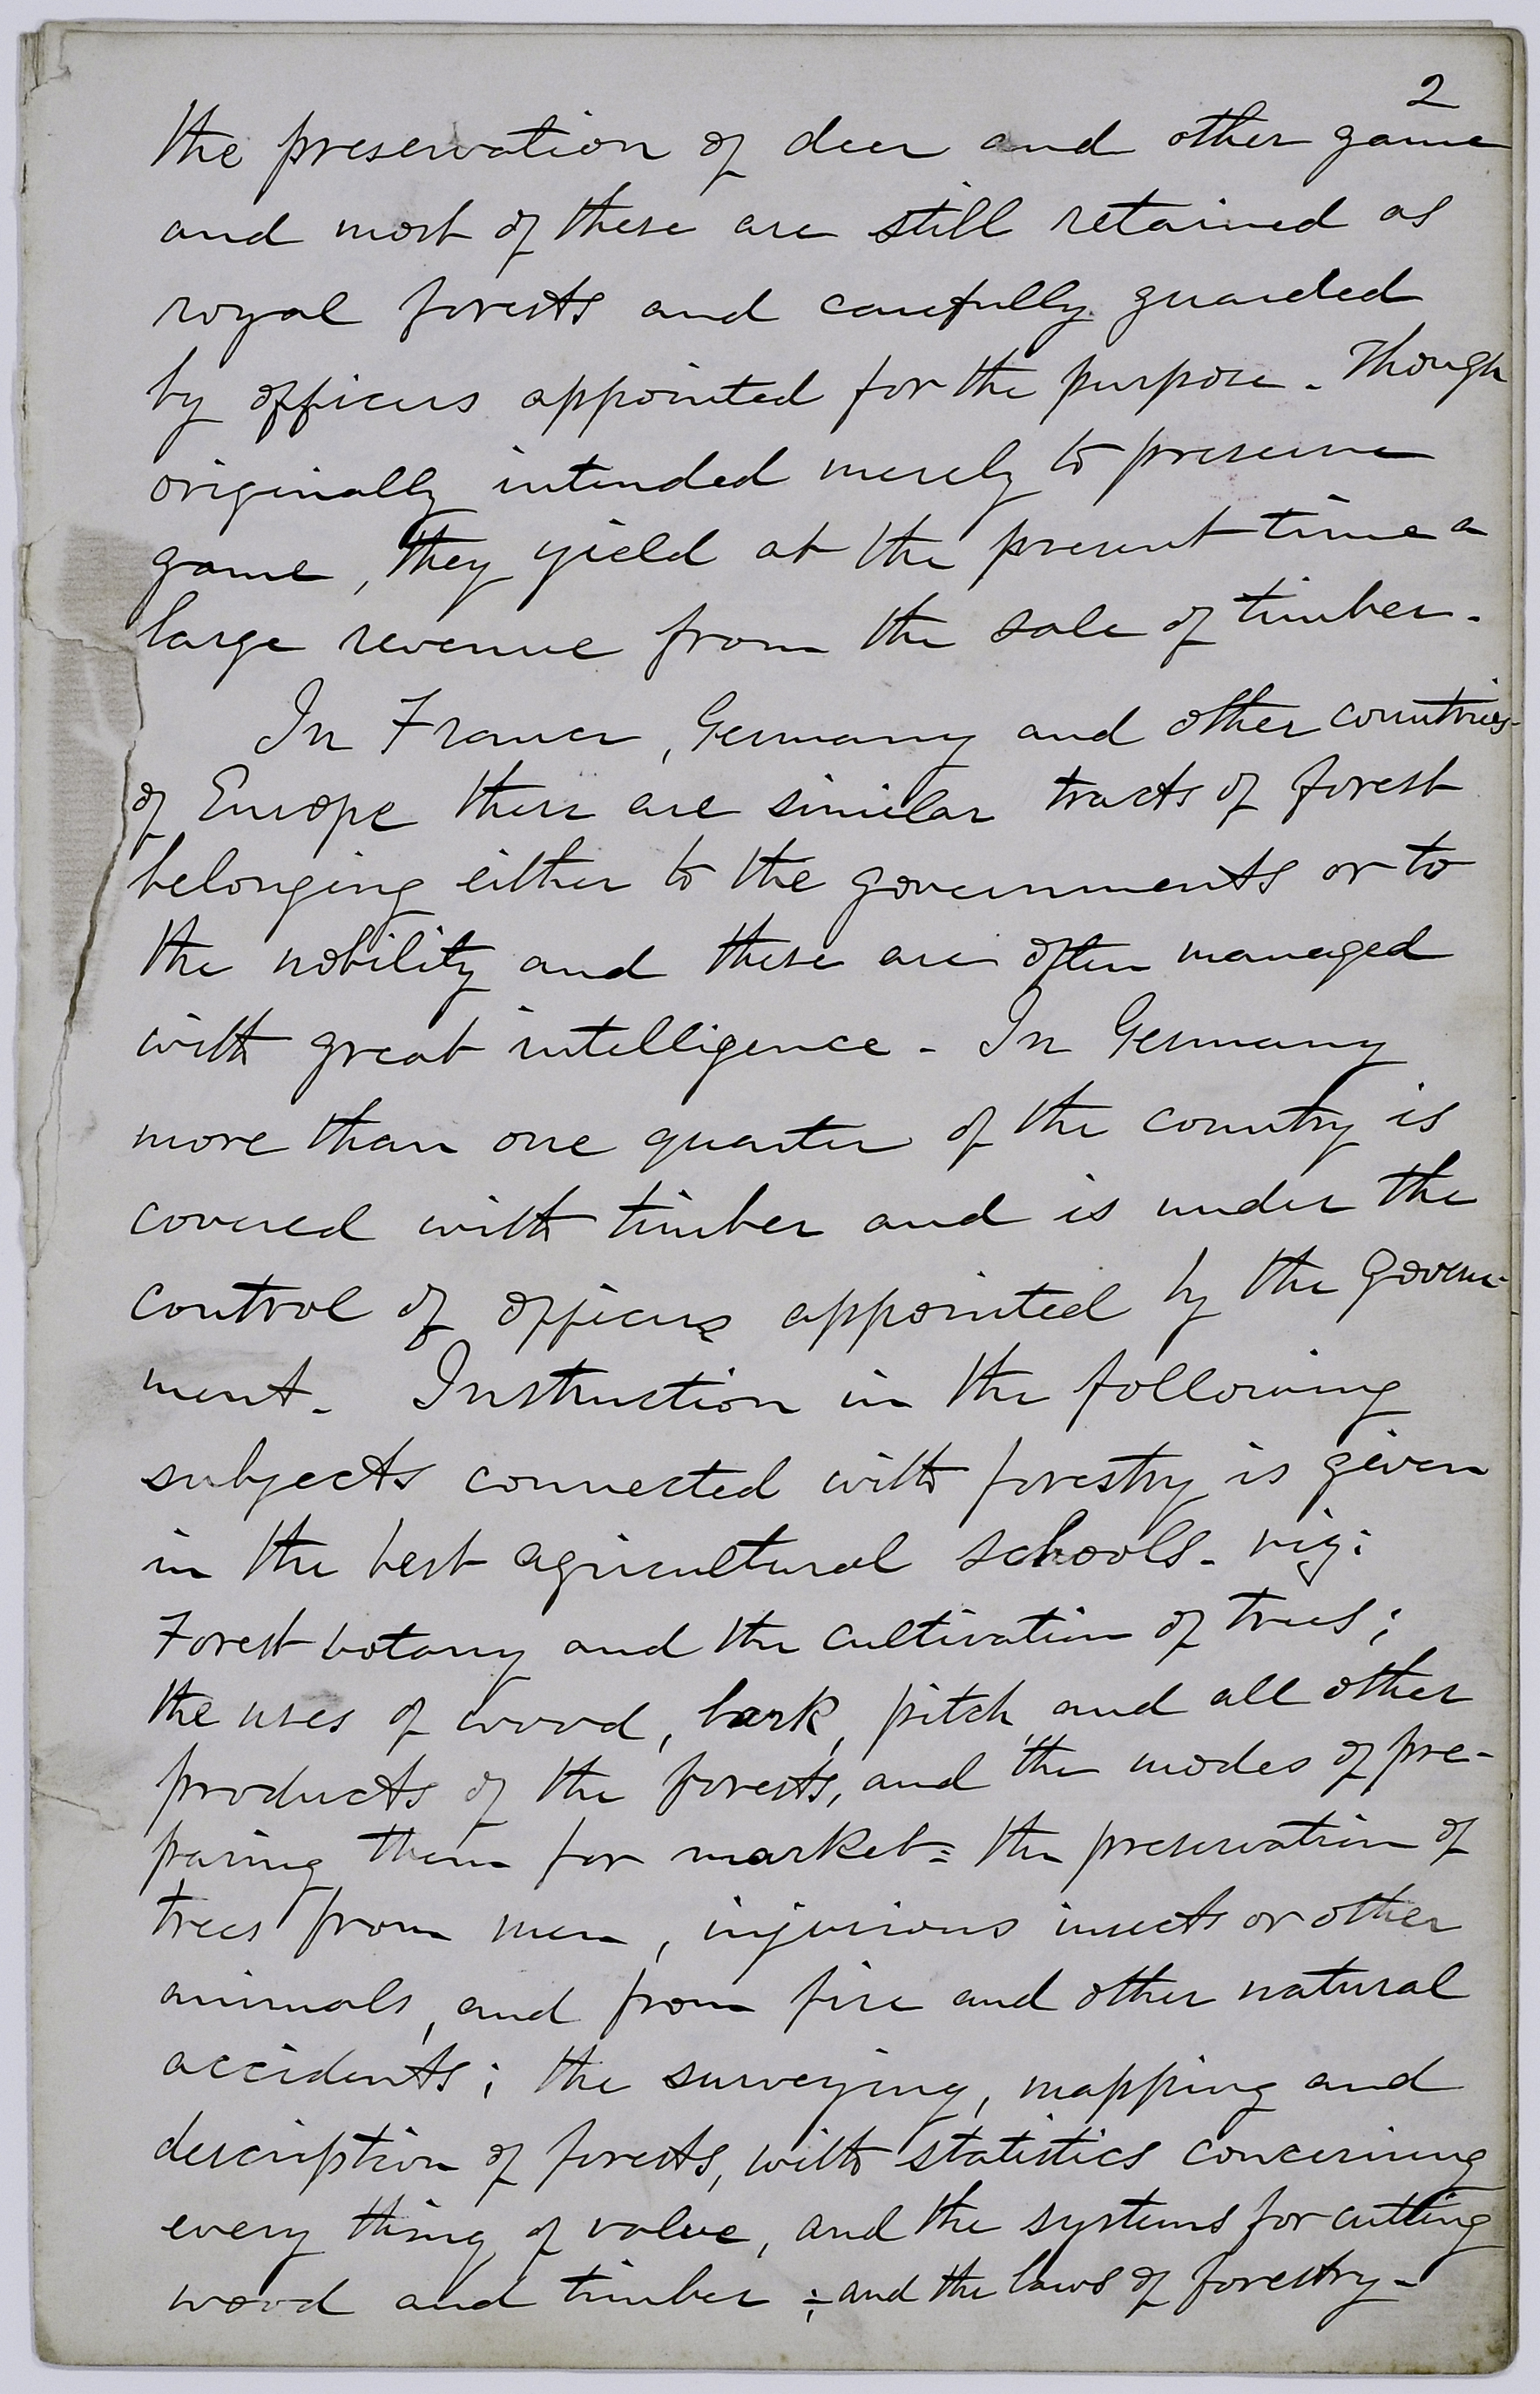 2
the preservation of deer and other game
and most of these are still retained as
royal forests and carefully guarded
by officers appointed for the purpose. Though
originally intended merely to preserve
game, they yield at the present time a
large revenue from the sale of timber.
In France, Germany and other countries
of Europe there are similar tracts of forest
belonging either to the governments or to
the nobility and these are often managed
with great intelligence. In Germany
more than one quarter of the country is
covered with timber and is under the
control of officers appointed by the govern-
ment. Instruction in the following
subjects connected with forestry is given
in the best agricultural schools. viz:
Forest botany and the cultivation of trees;
the uses of wood, bark, pitch and all other
products of the forests, and the modes of pre-
paring them for market: the preservation of
trees from men, injurious insects or other
animals, and from fire and other natural
accidents; the surveying, mapping and
description of forests, with statistics concerning
every thing of value, and the systems for cutting
wood and timber; and the laws of forestry.